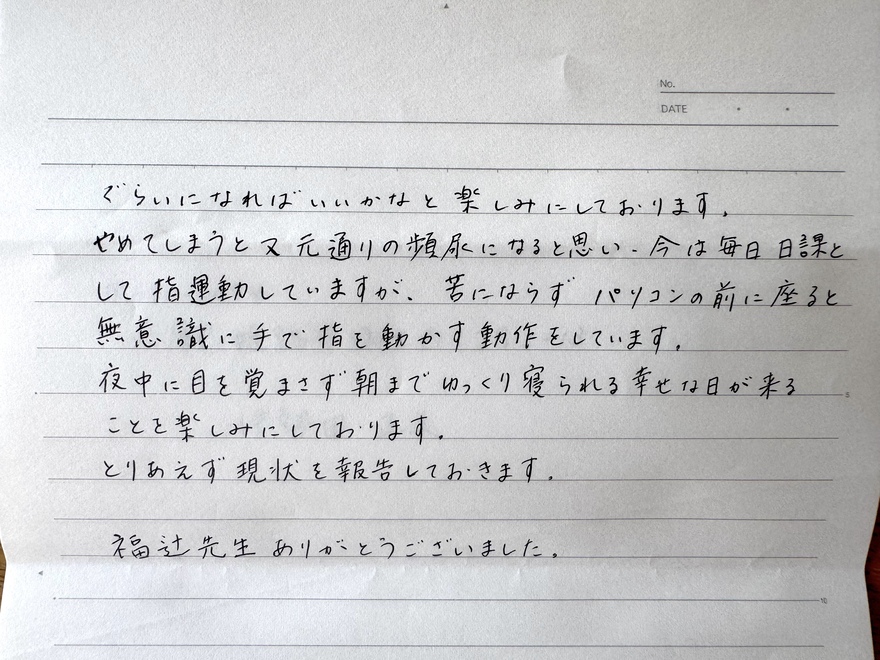 No.
DATE
ぐらいになればいいかなと楽しみにしております。
やめてしまうと又元通りの頻尿になると思い、今は毎日日課と
して指運動していますが、苦にならずパソコンの前に座ると
無意識に手で指を動かす動作をしています。
夜中に目を覚まさず朝までゆっくり寝られる幸せな日が来る
ことを楽しみにしております。
とりあえず現状を報告しておきます。
福辻先生ありがとうございました。
5
10